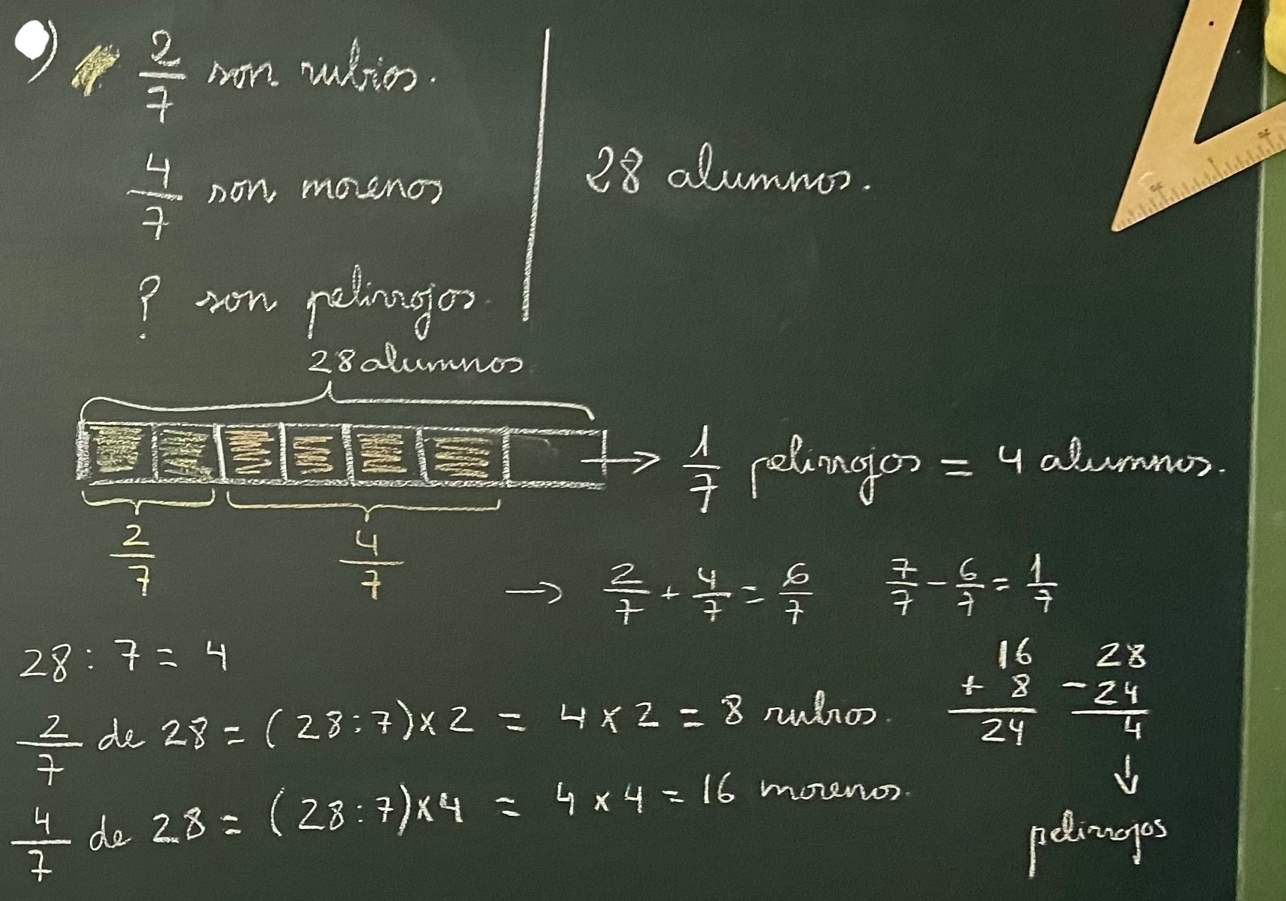 2/7 son rubios.
4/7 son morenos
? son pelirrojos.
28 alumnos.
28 alumnos
1/7 pelirrojos = 4 alumnos.
2/7 4/7
→ 2/7 + 4/7 = 6/7 7/7 - 6/7 = 1/7
28 : 7 = 4
2/7 de 28 = (28:7)×2 = 4×2 = 8 rubios.
4/7 de 28 = (28:7)×4 = 4×4 = 16 morenos.
16
+ 8
24
28
-24
4
↓
pelirrojos